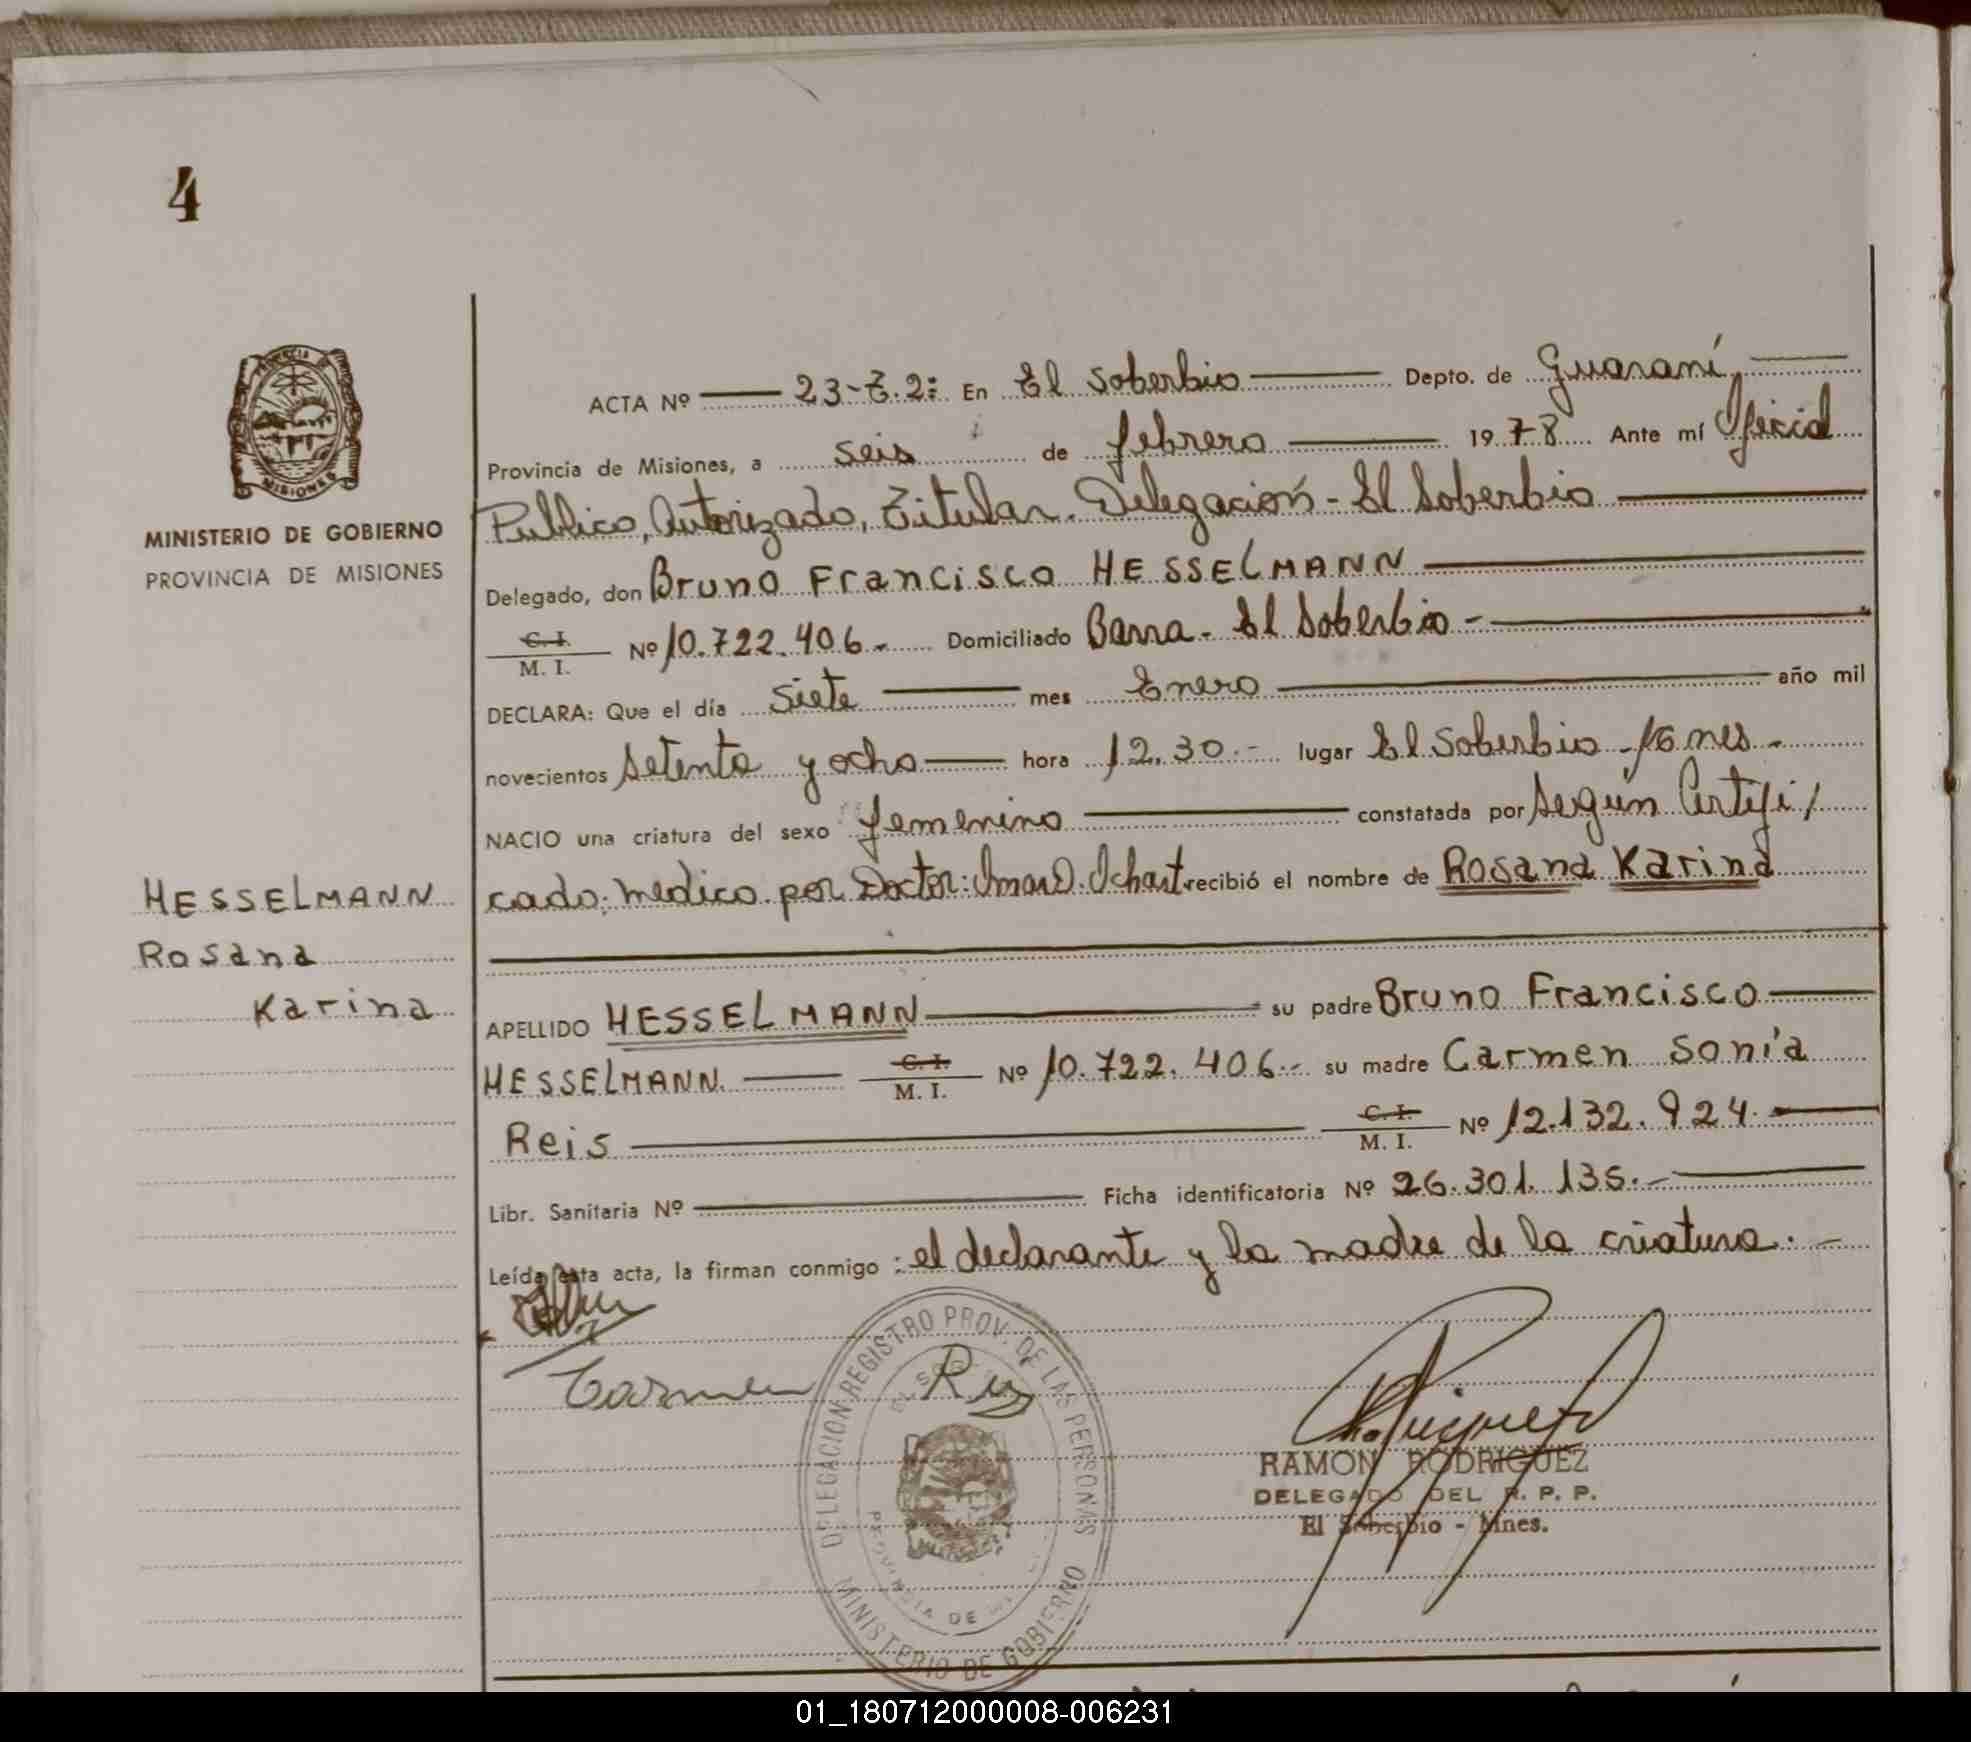 4
PROVINCIA DE
MISIONES
MINISTERIO DE GOBIERNO
PROVINCIA DE MISIONES
HESSELMANN
Rosana
Karina
ACTA Nº 23-T.2: En El Soberbio Depto. de Guaraní
Provincia de Misiones, a seis de febrero 1978 Ante mí Oficial
Publico, Autorizado, Titular. Delegación - El Soberbio
Delegado, don Bruno Francisco HESSELMANN
C. I.
M. I. Nº 10.722.406.- Domiciliado Barra - El Soberbio -
DECLARA: Que el día Siete mes Enero año mil
novecientos setenta y ocho hora 12.30.- lugar El Soberbio
NACIO una criatura del sexo femenino constatada por según Certifi/
cado: medico por Doctor: recibió el nombre de Rosana Karina
APELLIDO HESSELMANN su padre Bruno Francisco
HESSELMANN C. I.
M. I. Nº 10.722.406.- su madre Carmen Sonia
Reis C. I.
M. I. Nº 12.132.924.
Libr. Sanitaria Nº Ficha identificatoria Nº 26.301.135.-
Leída esta acta, la firman conmigo: el declarante y la madre de la criatura.-
Carmen
DELEGACION REGISTRO PROV. DE LAS PERSONAS
PROVINCIA DE
MINISTERIO DE GOBIERNO
RAMON RODRIGUEZ
DELEGADO DEL R. P. P.
El Soberbio - Mnes.
01_180712000008-006231